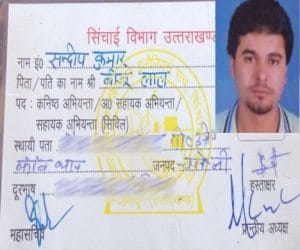 सिंचाई विभाग उत्तराखण्ड
नाम इं0 सन्दीप कुमार
पिता/पति का नाम श्री लाल
पद : कनिष्ठ अभियन्ता/अ0 सहायक अभियन्ता/
सहायक अभियन्ता (सिविल)
स्थायी पता
जनपद
दूरभाष
हस्ताक्षर
महासचिव
प्रान्तीय अध्यक्ष